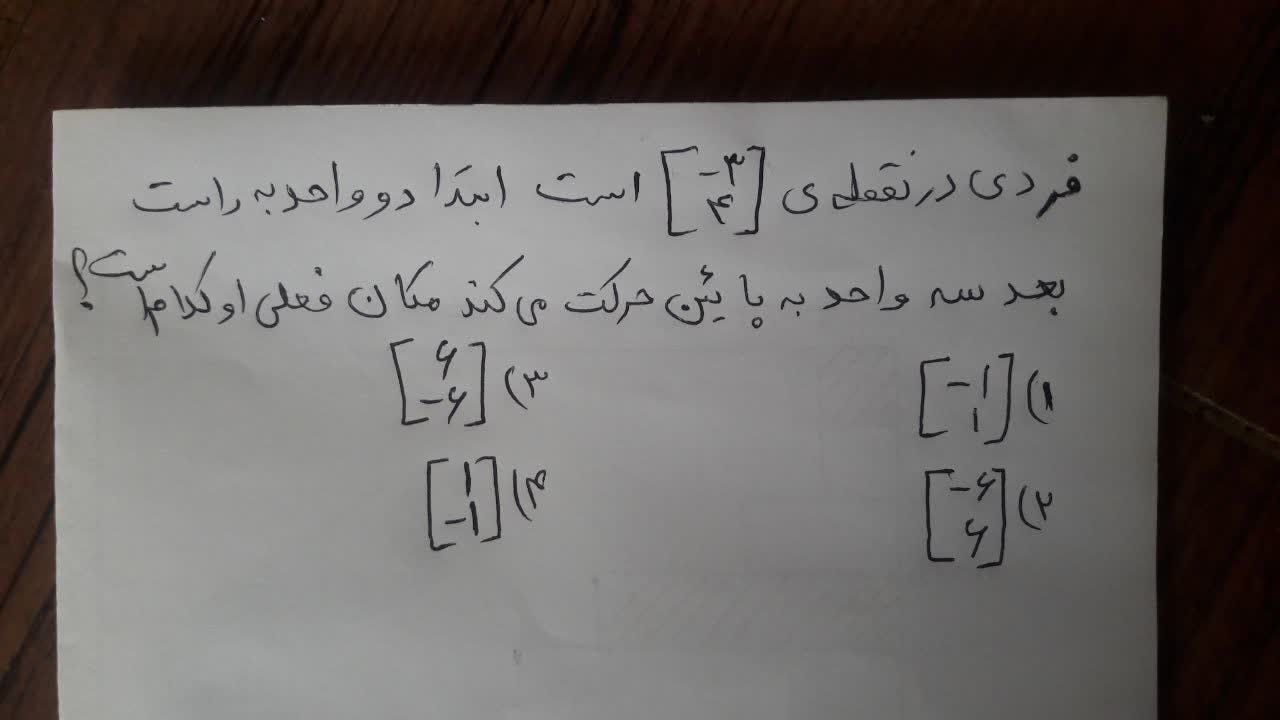 فردی در نقطه ی [-۳ ۴] است ابتدا دو واحد به راست
بعد سه واحد به پائین حرکت می کند مکان فعلی او کدام است؟
۱) [-۱ ۱] ۳) [۶ -۶]
۲) [-۶ ۶] ۴) [۱ -۱]